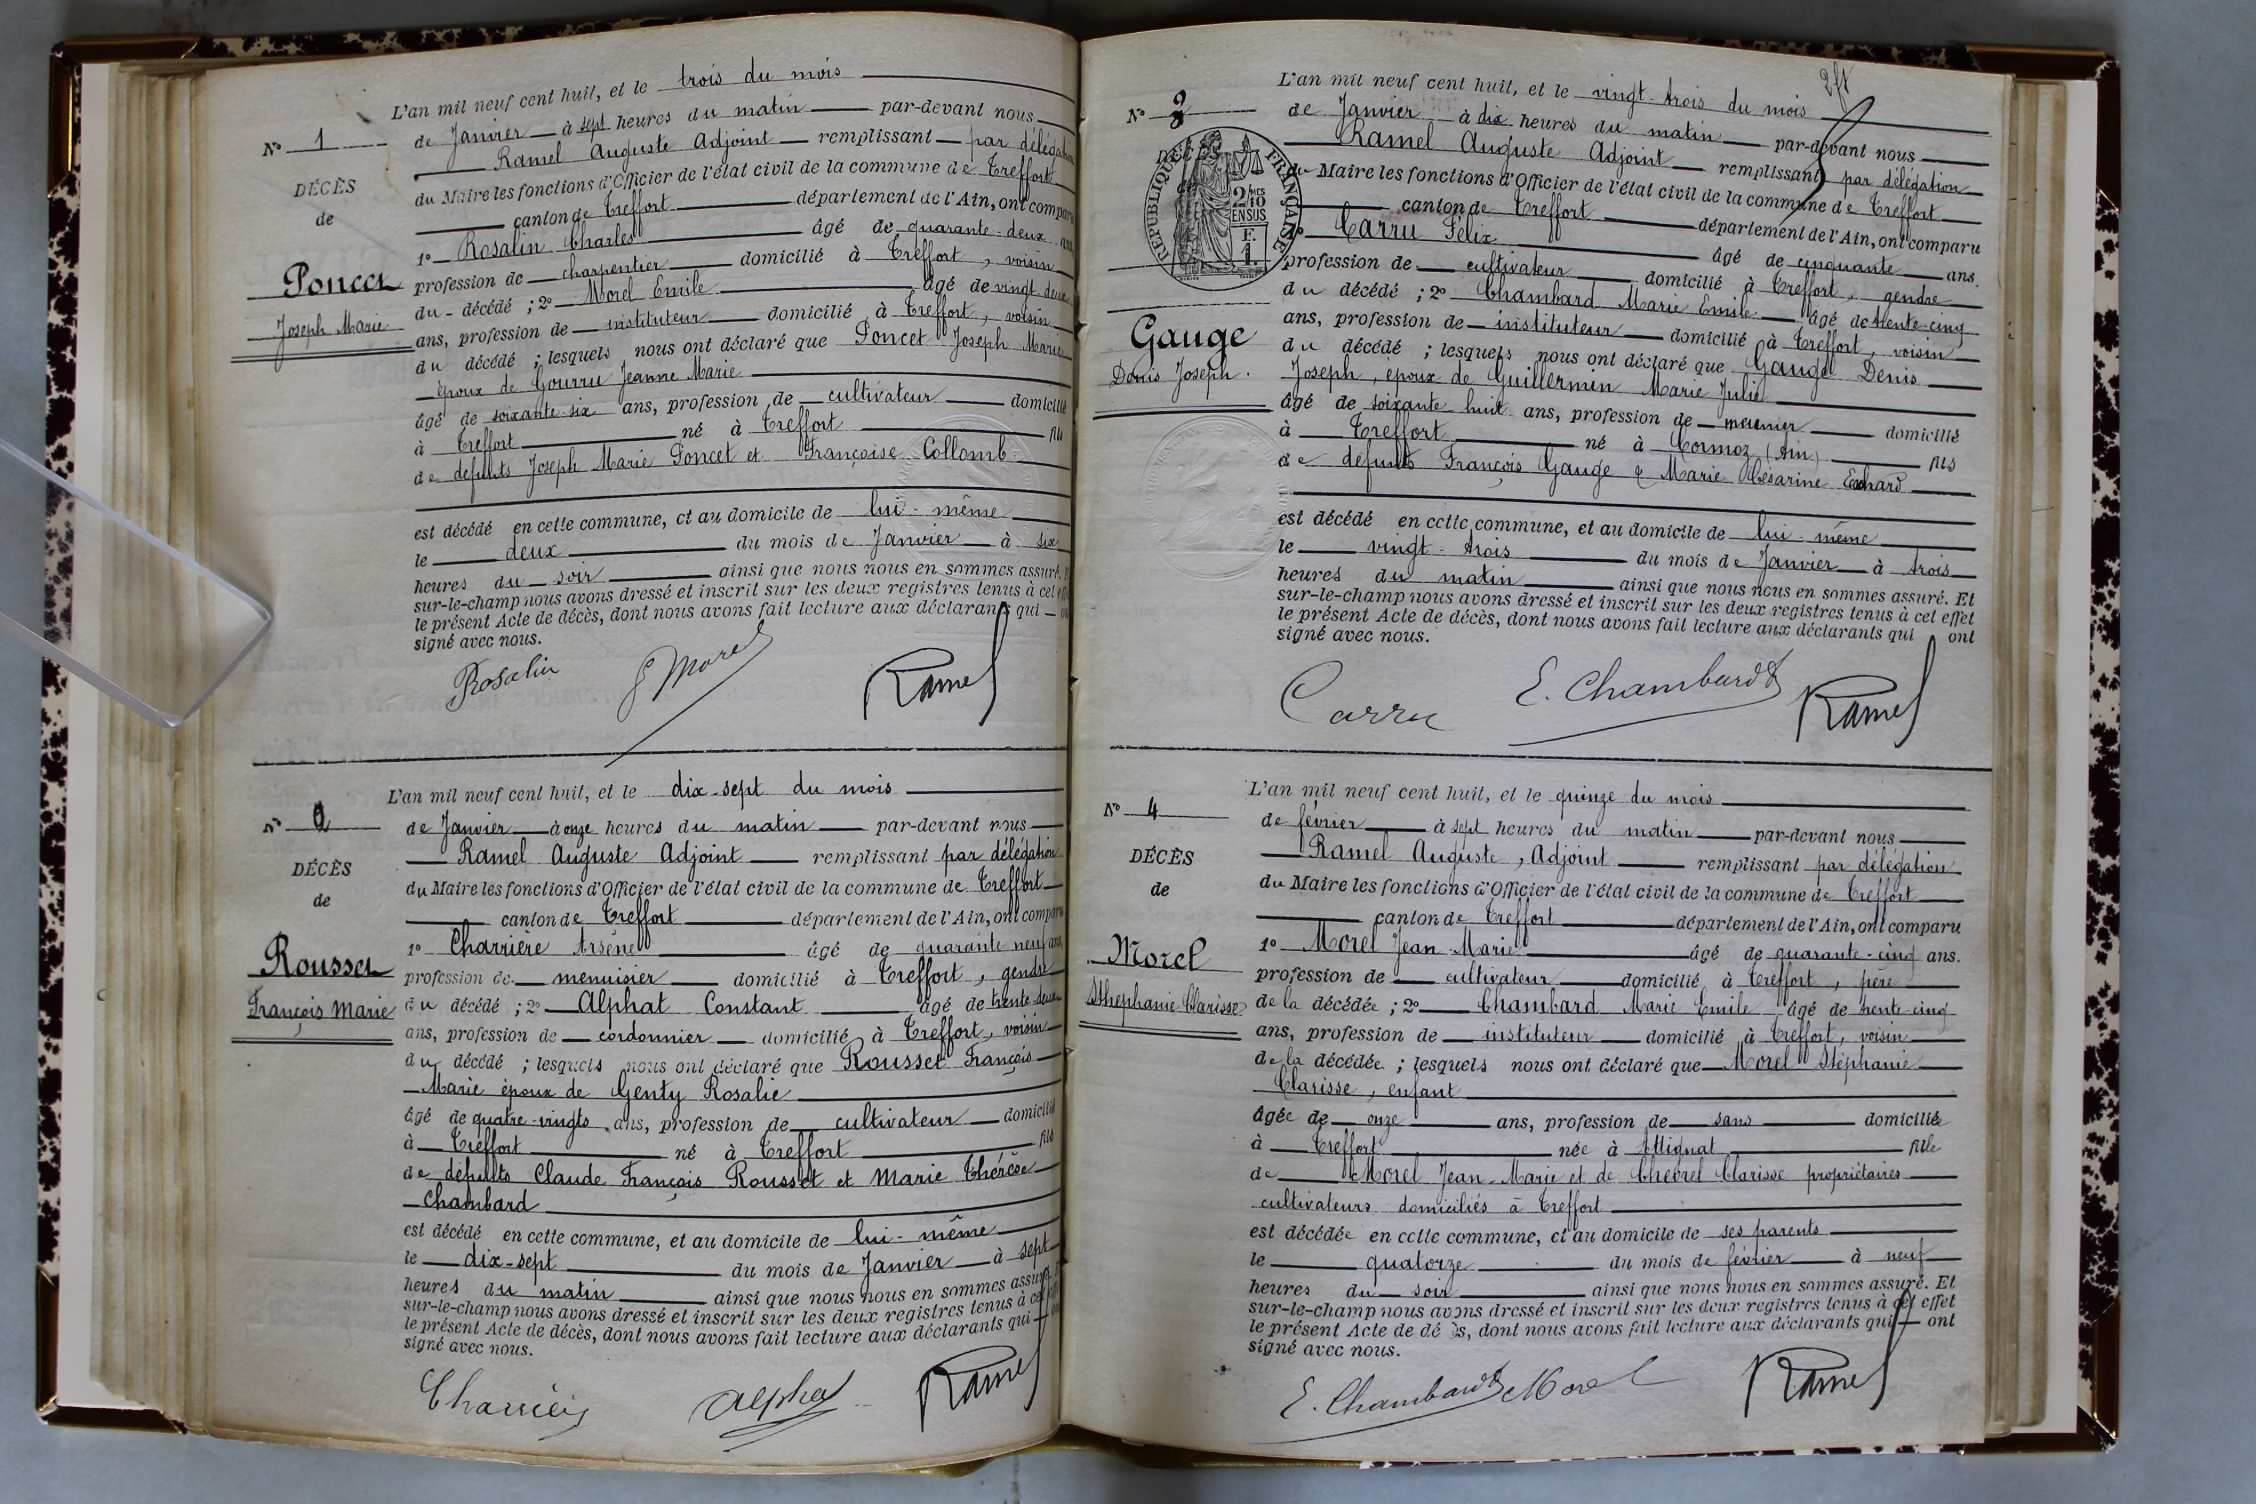 L'an mil neuf cent huit, et le trois du mois
N° 1
de Janvier à sept heures du matin par-devant nous
Ramel Auguste Adjoint remplissant par délégation
DÉCÈS
du Maire les fonctions d'Officier de l'état civil de la commune de Treffort
de
canton de Treffort département de l'Ain, ont comparu
1° Rosalin Charles âgé de quarante-deux ans
Poncet
profession de charpentier domicilié à Treffort, voisin
Joseph Marie
du décédé ; 2° Morel Emile âgé de vingt-deux
ans, profession de instituteur domicilié à Treffort, voisin
du décédé ; lesquels nous ont déclaré que Poncet Joseph Marie
époux de Gourru Jeanne Marie
âgé de soixante-six ans, profession de cultivateur domicilié
à Treffort né à Treffort fils
de défunts Joseph Marie Poncet et Françoise Collomb
est décédé en cette commune, et au domicile de lui-même
le deux du mois de Janvier à six
heures du soir ainsi que nous nous en sommes assuré. Et
sur-le-champ nous avons dressé et inscrit sur les deux registres tenus à cet effet
le présent Acte de décès, dont nous avons fait lecture aux déclarants qui ont
signé avec nous.
Rosalin E Morel Ramel
L'an mil neuf cent huit, et le dix-sept du mois
N° 2
de Janvier à onze heures du matin par-devant nous
Ramel Auguste Adjoint remplissant par délégation
DÉCÈS
du Maire les fonctions d'Officier de l'état civil de la commune de Treffort
de
canton de Treffort département de l'Ain, ont comparu
1° Charrière Arsène âgé de quarante neuf ans
Rousset
profession de menuisier domicilié à Treffort, gendre
François Marie
du décédé ; 2° Alphat Constant âgé de trente-deux
ans, profession de cordonnier domicilié à Treffort, voisin
du décédé ; lesquels nous ont déclaré que Rousset François
Marie époux de Genty Rosalie
âgé de quatre-vingts ans, profession de cultivateur domicilié
à Treffort né à Treffort fils
de défunts Claude François Rousset et Marie Thérèse
Chambard
est décédé en cette commune, et au domicile de lui-même
le dix-sept du mois de Janvier à sept
heures du matin ainsi que nous nous en sommes assuré. Et
sur-le-champ nous avons dressé et inscrit sur les deux registres tenus à cet effet
le présent Acte de décès, dont nous avons fait lecture aux déclarants qui ont
signé avec nous.
Charrière Alphat Ramel
L'an mil neuf cent huit, et le vingt-trois du mois
N° 3
de Janvier à dix heures du matin par-devant nous
Ramel Auguste Adjoint remplissant par délégation
du Maire les fonctions d'Officier de l'état civil de la commune de Treffort
RÉPUBLIQUE FRANÇAISE
2/10 EN SUS
F. 1.
canton de Treffort département de l'Ain, ont comparu
1° Carru Félix âgé de cinquante ans.
profession de cultivateur domicilié à Treffort, gendre
du décédé ; 2° Chambard Marie Emile âgé de trente-cinq
Gauge
ans, profession de instituteur domicilié à Treffort, voisin
Denis Joseph.
du décédé ; lesquels nous ont déclaré que Gauge Denis
Joseph, époux de Guillermin Marie Julie
âgé de soixante huit ans, profession de meunier domicilié
à Treffort né à Cormoz (Ain) fils
de défunts François Gauge & Marie Césarine
est décédé en cette commune, et au domicile de lui-même
le vingt-trois du mois de Janvier à trois
heures du matin ainsi que nous nous en sommes assuré. Et
sur-le-champ nous avons dressé et inscrit sur les deux registres tenus à cet effet
le présent Acte de décès, dont nous avons fait lecture aux déclarants qui ont
signé avec nous.
Carru E. Chambard Ramel
L'an mil neuf cent huit, et le quinze du mois
N° 4
de février à sept heures du matin par-devant nous
Ramel Auguste, Adjoint remplissant par délégation
DÉCÈS
du Maire les fonctions d'Officier de l'état civil de la commune de Treffort
de
canton de Treffort département de l'Ain, ont comparu
1° Morel Jean-Marie âgé de quarante-cinq ans.
Morel
profession de cultivateur domicilié à Treffort, père
Sthephanie Clarisse
de la décédée ; 2° Chambard Marie Emile âgé de trente-cinq
ans, profession de instituteur domicilié à Treffort, voisin
de la décédée ; lesquels nous ont déclaré que Morel Stéphanie
Clarisse, enfant
âgée de onze ans, profession de sans domiciliée
à Treffort née à Attignat fille
de Morel Jean-Marie et de Chevrel Clarisse propriétaires
cultivateurs domiciliés à Treffort
est décédée en cette commune, et au domicile de ses parents
le quatorze du mois de février à neuf
heures du soir ainsi que nous nous en sommes assuré. Et
sur-le-champ nous avons dressé et inscrit sur les deux registres tenus à cet effet
le présent Acte de dé ès, dont nous avons fait lecture aux déclarants qui ont
signé avec nous.
E. Chambard Morel Ramel